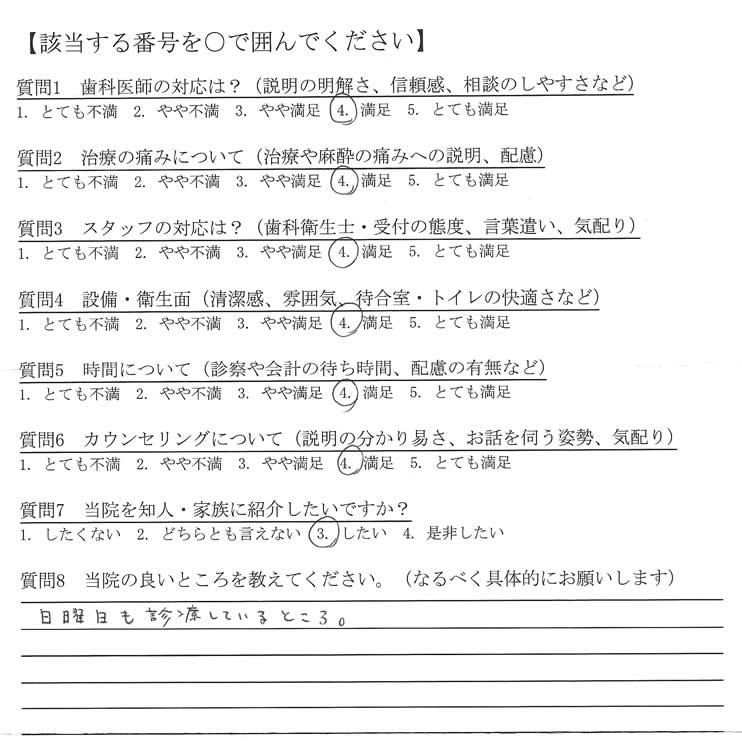 【該当する番号を〇で囲んでください】
質問1 歯科医師の対応は？（説明の明解さ、信頼感、相談のしやすさなど）
1. とても不満 2. やや不満 3. やや満足 4. 満足 5. とても満足
質問2 治療の痛みについて（治療や麻酔の痛みへの説明、配慮）
1. とても不満 2. やや不満 3. やや満足 4. 満足 5. とても満足
質問3 スタッフの対応は？（歯科衛生士・受付の態度、言葉遣い、気配り）
1. とても不満 2. やや不満 3. やや満足 4. 満足 5. とても満足
質問4 設備・衛生面（清潔感、雰囲気、待合室・トイレの快適さなど）
1. とても不満 2. やや不満 3. やや満足 4. 満足 5. とても満足
質問5 時間について（診察や会計の待ち時間、配慮の有無など）
1. とても不満 2. やや不満 3. やや満足 4. 満足 5. とても満足
質問6 カウンセリングについて（説明の分かり易さ、お話を伺う姿勢、気配り）
1. とても不満 2. やや不満 3. やや満足 4. 満足 5. とても満足
質問7 当院を知人・家族に紹介したいですか？
1. したくない 2. どちらとも言えない 3. したい 4. 是非したい
質問8 当院の良いところを教えてください。（なるべく具体的にお願いします）
日曜日も診療しているところ。